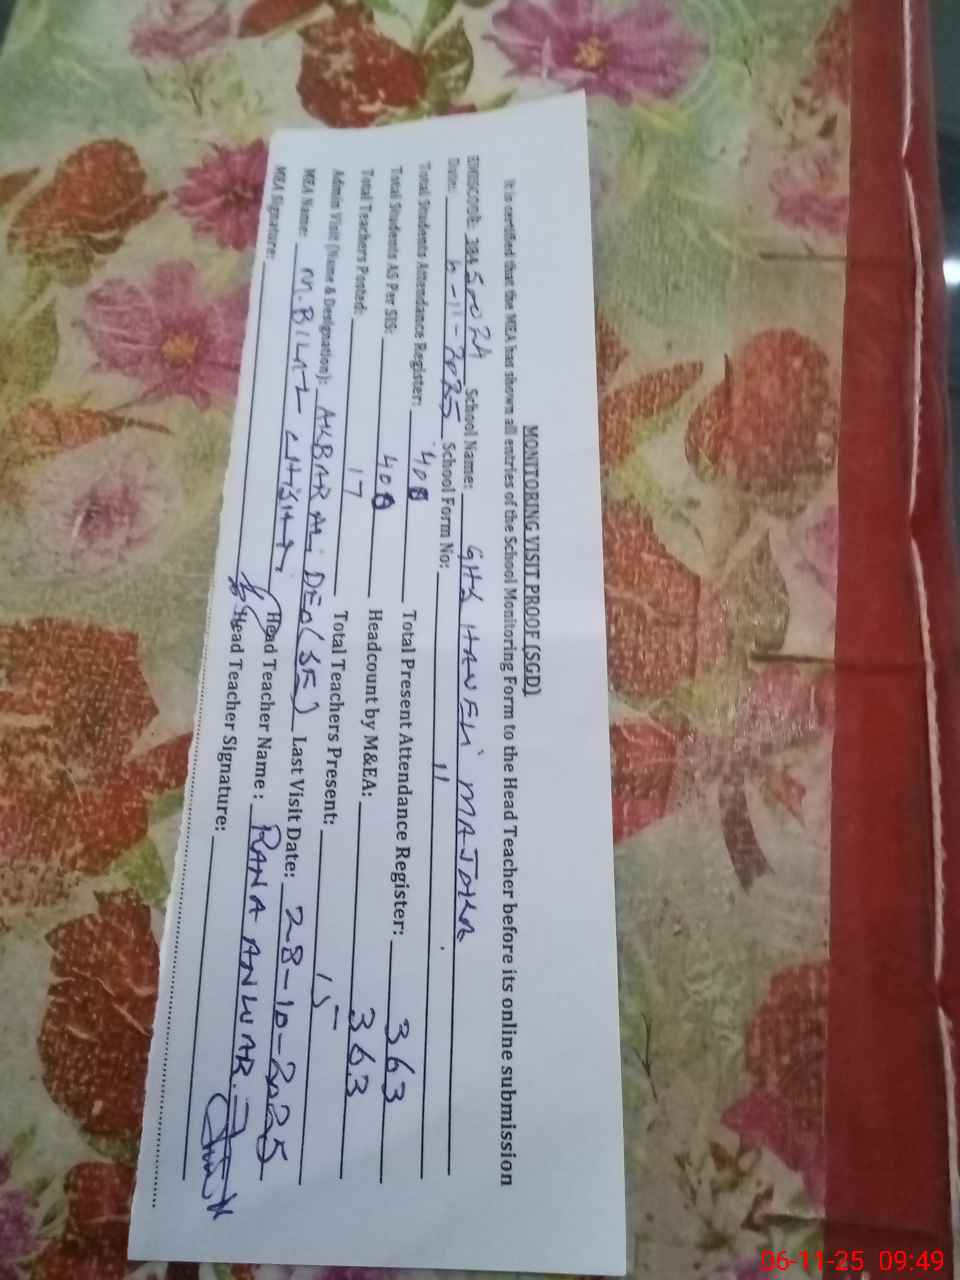 MONITORING VISIT PROOF (SGD)
It is certified that the MEA has shown all entries of the School Monitoring Form to the Head Teacher before its online submission
EMISCODE: School Name: GHS HAVELI MAJOKA
Date: 6-11-2025 School Form No: 11
Total Students Attendance Register: 408 Total Present Attendance Register: 363
Total Students AS Per SIS: 408 Headcount by M&EA: 363
Total Teachers Posted: 17 Total Teachers Present: 15
Admin Visit (Name & Designation): AKBAR ALi DEO(SE) Last Visit Date: 28-10-2025
MEA Name: M.BILAL CHISHTI Head Teacher Name: RANA ANWAR
MEA Signature: Head Teacher Signature:
06-11-25 09:49